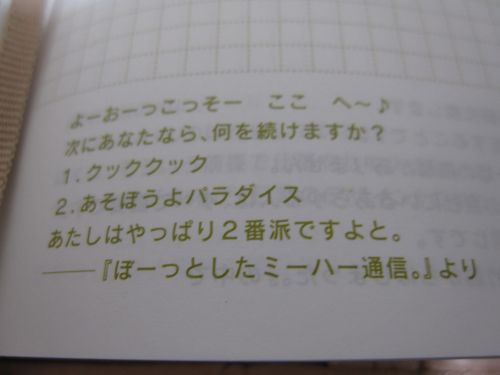 よーおーっこっそー　ここ　へ〜♪
次にあなたなら、何を続けますか？
1.クッククック
2.あそぼうよパラダイス
あたしはやっぱり2番派ですよと。
――『ぼーっとしたミーハー通信。』より